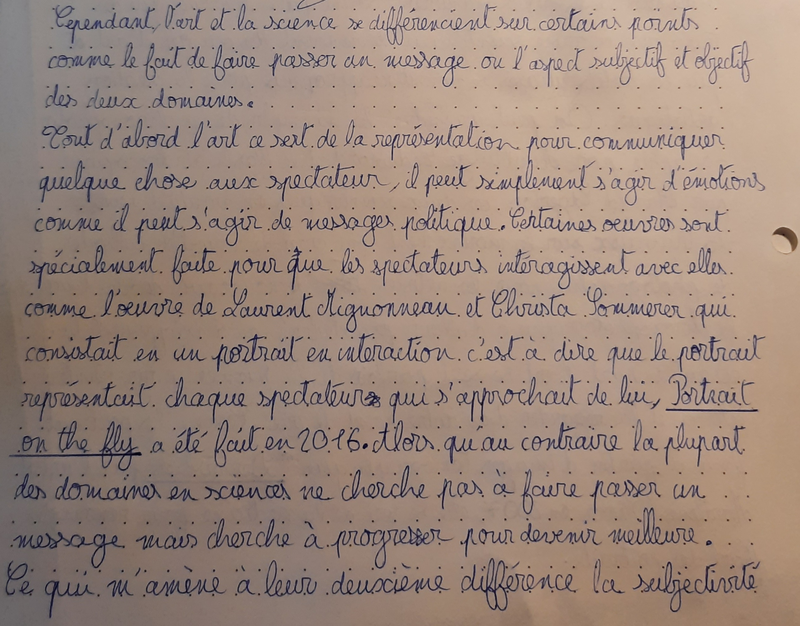 Cependant, l'art et la science se différencient sur certains points
comme le fait de faire passer un message ou l'aspect subjectif et objectif
des deux domaines.
Tout d'abord l'art ce sert de la représentation pour communiquer
quelque chose aux spectateur, il peut simplement s'agir d'émotions
comme il peut s'agir de messages politique. Certaines oeuvres sont
spécialement faite pour que les spectateurs interagissent avec elles
comme l'oeuvre de Laurent Mignonneau et Christa Sommerer qui
consistait en un portrait en interaction c'est à dire que le portrait
représentait chaque spectateurs qui s'approchait de lui, Portrait
on the fly a été fait en 2016. Alors qu'au contraire la plupart
des domaines en sciences ne cherche pas à faire passer un
message mais cherche à progresser pour devenir meilleure.
Ce qui m'amène à leur deuxième différence la subjectivité